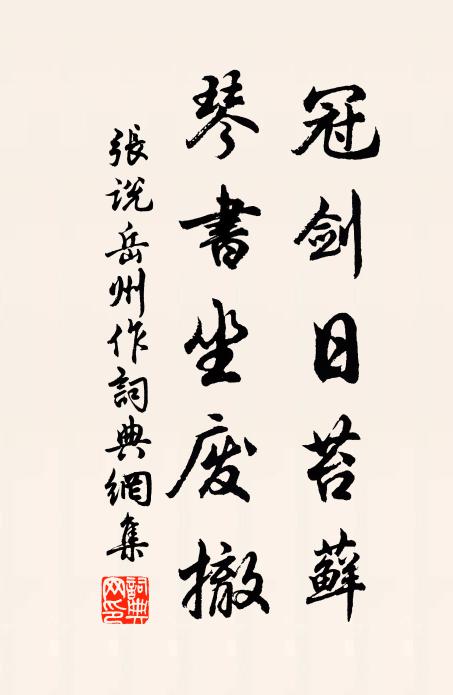 冠剑日苔蘚
琴書坐废撤
張説岳州作詞典網集
詞典網印